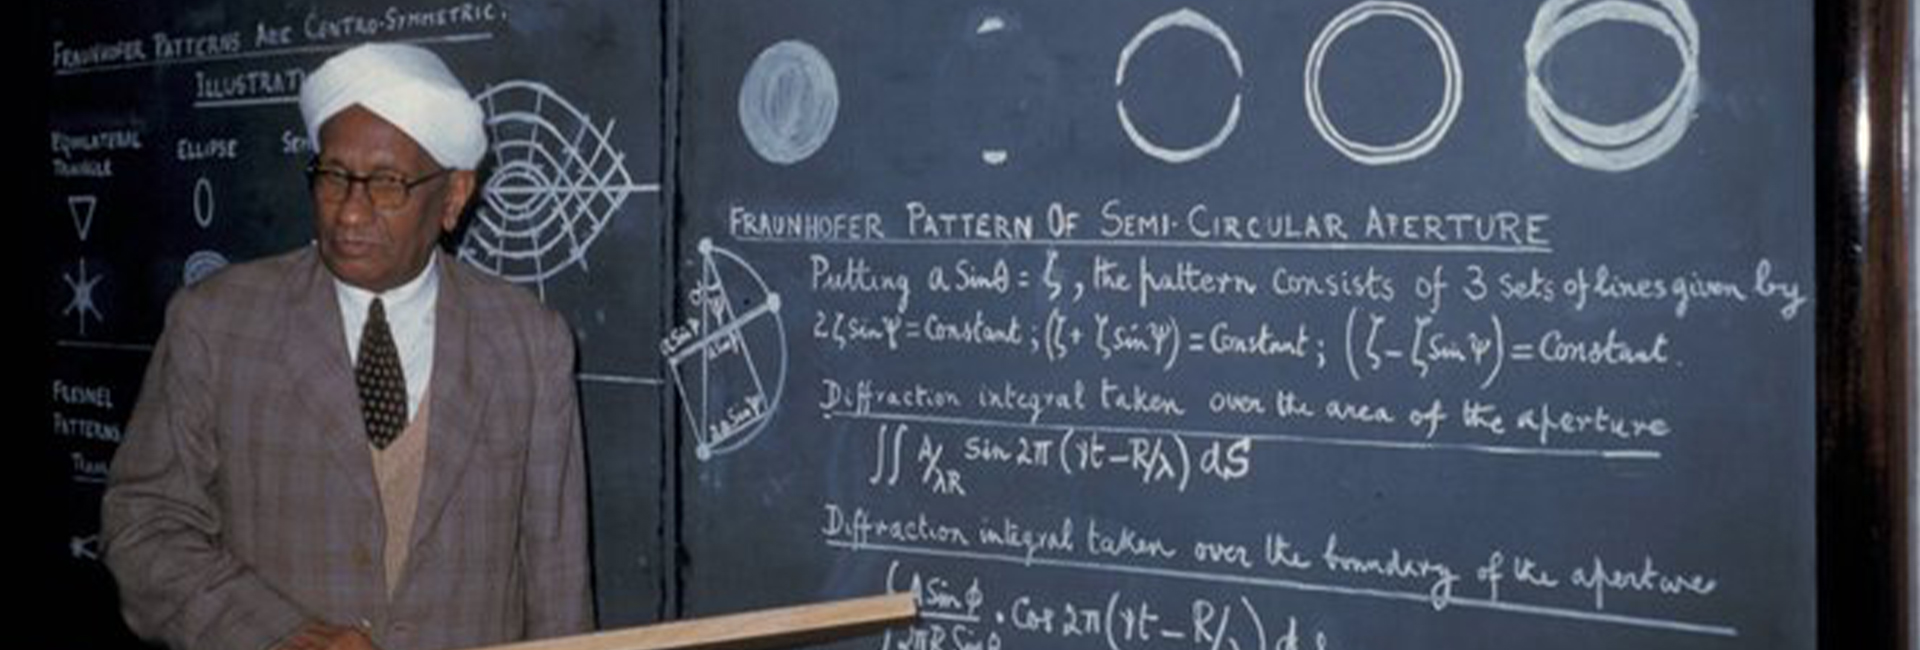 FRAUNHOFER PATTERNS ARE CENTRO-SYMMETRIC.
EQUILATERAL TRIANGLE
ELLIPSE
FRESNEL
PATTERNS
FRAUNHOFER PATTERN OF SEMI-CIRCULAR APERTURE
Putting a Sinθ = ζ, the pattern consists of 3 sets of lines given by
2ζ sin ψ = Constant ; (ζ + ζ sin ψ) = Constant ; (ζ - ζ Sin ψ) = Constant.
2a Sin ψ
Diffraction integral taken over the area of the aperture
∫∫ A/λR Sin 2π (γt - R/λ) dS
Diffraction integral taken over the boundary of the aperture
A Sin ϕ / 2πR Sin θ . Cos 2π (γt - R/λ) d